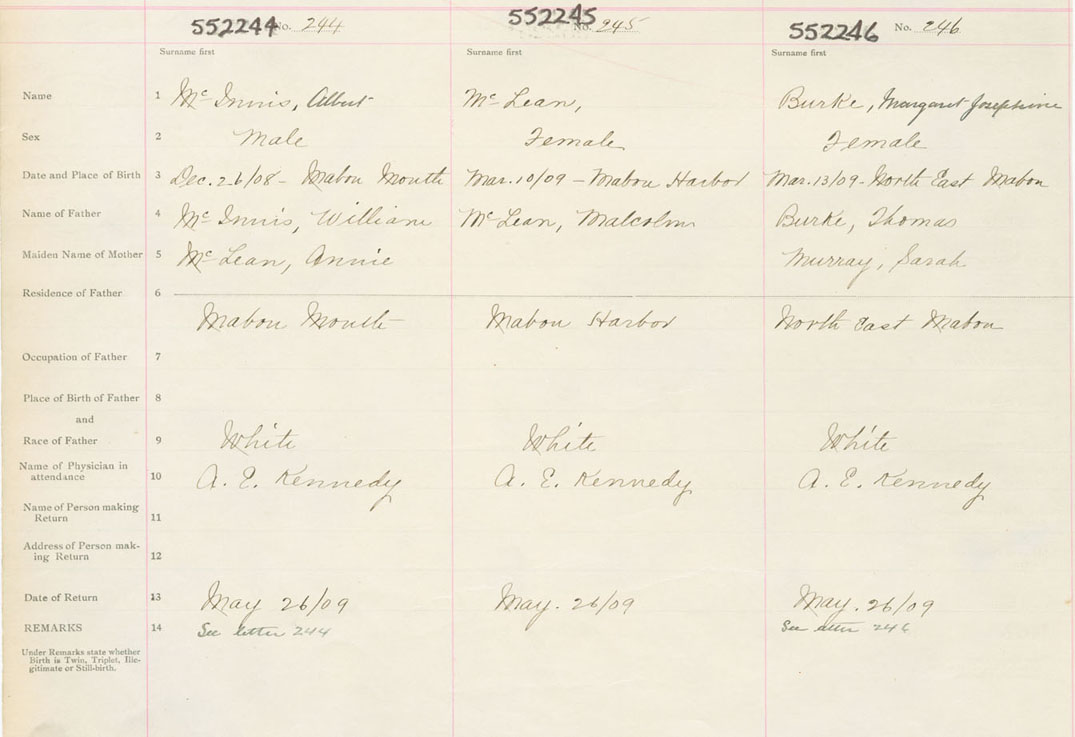 552244 No. 244 552245 No. 245 552246 No. 246
Surname first Surname first Surname first
Name 1 Mc Innis, Albert Mc Lean, Burke, Margaret Josephine
Sex 2 Male Female Female
Date and Place of Birth 3 Dec. 26/08 - Mabou Mouth Mar. 10/09 - Mabou Harbor Mar. 13/09 - North East Mabou
Name of Father 4 Mc Innis, William Mc Lean, Malcolm Burke, Thomas
Maiden Name of Mother 5 Mc Lean, Annie Murray, Sarah
Residence of Father 6
Mabou Mouth Mabou Harbor North East Mabou
Occupation of Father 7
Place of Birth of Father 8
and
Race of Father 9 White White White
Name of Physician in
attendance 10 A. E. Kennedy A. E. Kennedy A. E. Kennedy
Name of Person making
Return 11
Address of Person mak-
ing Return 12
Date of Return 13 May 26/09 May. 26/09 May. 26/09
REMARKS 14 See letter 244 See letter 246
Under Remarks state whether
Birth is Twin, Triplet, Ille-
gitimate or Still-birth.